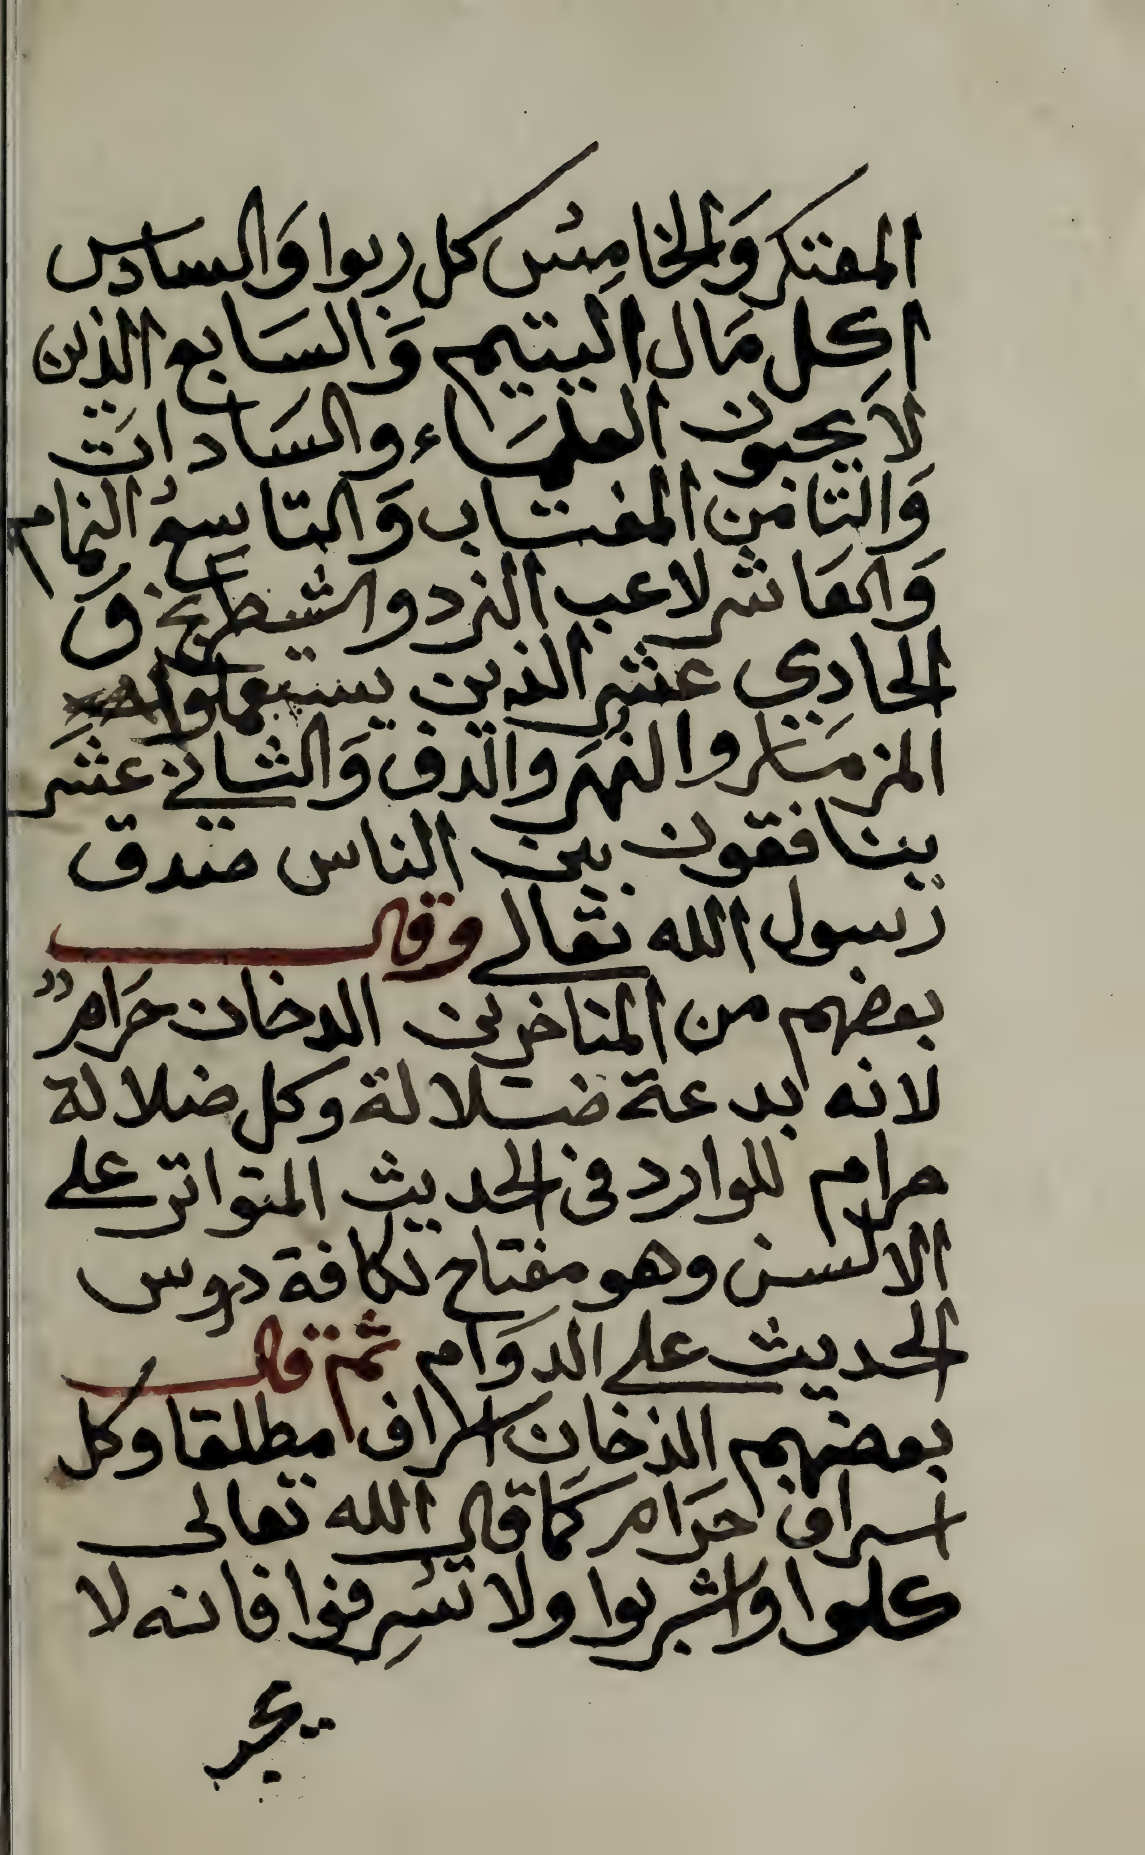 المفتكر وَالخامِسُ كل ربوا وَالسادس
اكل مَال اليتيم وَالسَابع الذين
لاَ يحبون العلمَاء والسَاداتَ
وَالثامن المغتاب وَالتاسعُ النمام
وَالعَاشر لاعب النرد والشطرنج وَ
الحادي عشر الذين يستعملوا
المزمَار والنهَر والدف وَالثاني عشَر
ينافقون بين الناس صَدق
رَسول الله تعالى وقال
بعضهم من المتاخرين الدخان حرَام
لانه بدعة ضَلالة وكل ضلالة
حرام للوارد في الحديث المتواتر على
الالسن وهو مفتاح لكافة دروس
الحديث على الدوَام ثم قال
بعضهم الدخان اسراف مطلقا وكل
اسراف حرَام كمَا قال الله تعالى
كلوا واشربوا ولا تسرِفوا فانه لا
يحب